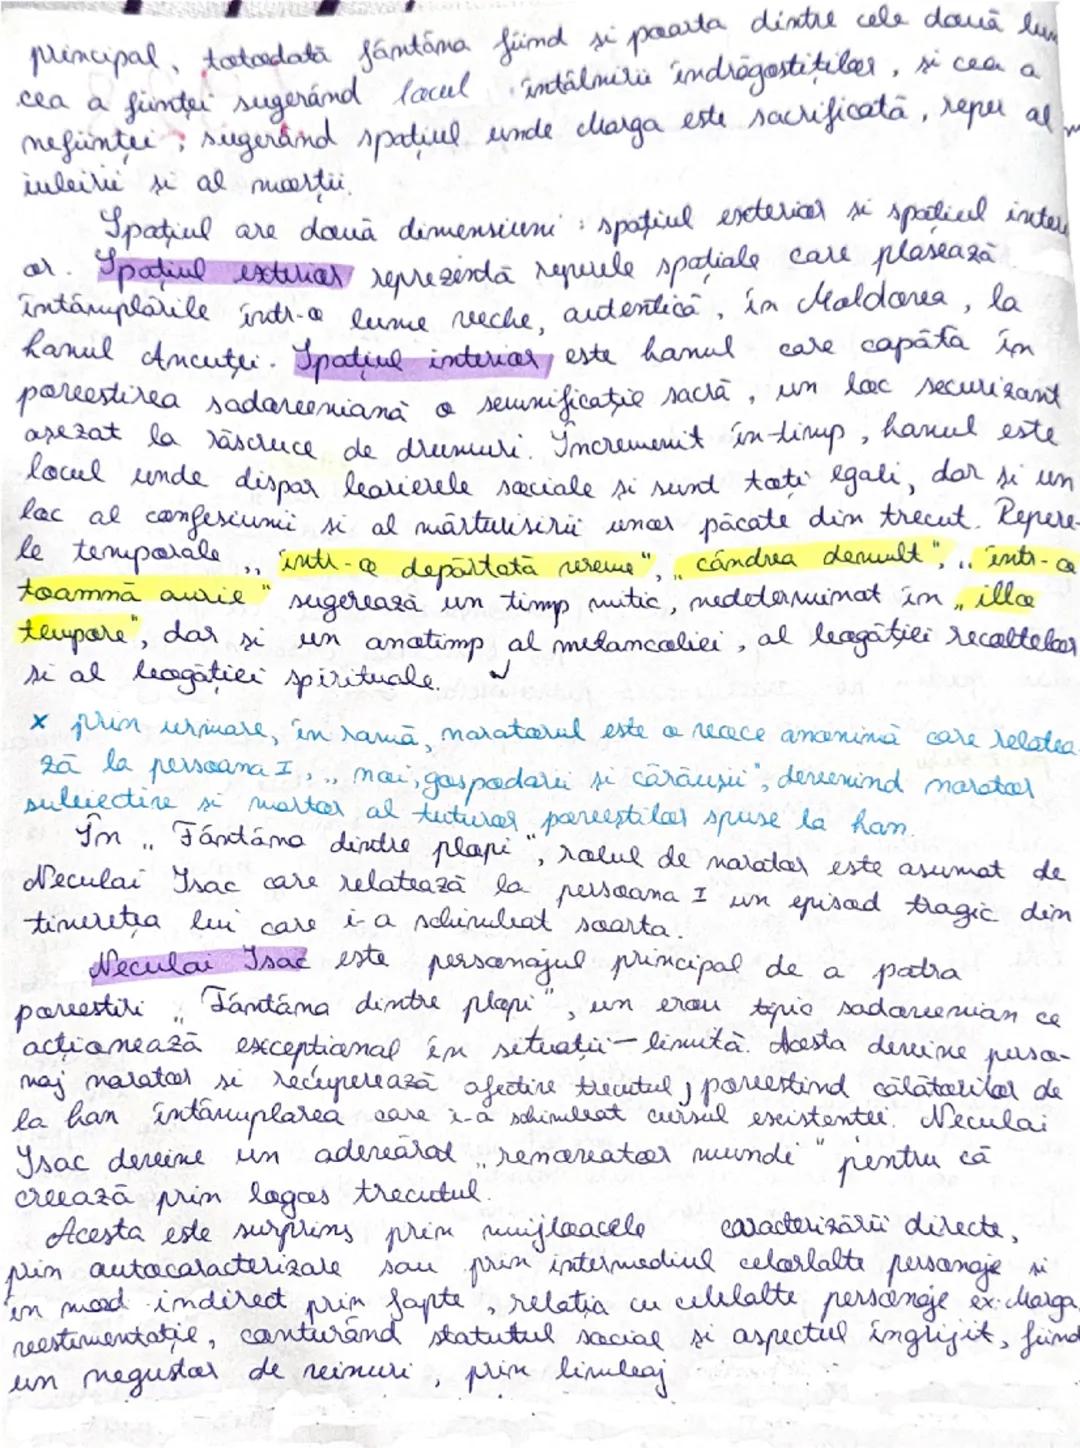 principal, totodată fântâna fiind si poarta dintre cele două lum
cea a ființei sugerând locul întâlnirii îndrăgostiților, si cea a
neființei; sugerând spațiul unde Marga este sacrificată, reper al
iubirii si al morții.
Spațiul are două dimensiuni: spațiul exterior si spațiul interi
or. Spațiul exterior reprezintă reperele spațiale care plasează
întâmplările într-o lume veche, autentică, în Moldova, la
hanul Ancuței. Spațiul interior este hanul care capătă în
povestirea sadoveniană o semnificație sacră, un loc securizant
așezat la răscruce de drumuri. Încremenit în timp, hanul este
locul unde dispar barierele sociale si sunt toți egali, dar și un
loc al confesiunii si al mărturisirii unor păcate din trecut. Repere-
le temporale „într-o depărtată vreme", „cândva demult", „într-o
toamnă aurie" sugerează un timp mitic, nedeterminat in „illo
tempore", dar și un anotimp al melancoliei, al bogăției recoltelor
si al bogăției spirituale.
x prin urmare, în ramă, naratorul este o voce anonimă care relatea-
ză la persoana I, „noi, gospodarii și cărăușii", devenind narator
subiectiv si martor al tuturor poveștilor spuse la han.
În „Fântâna dintre plopi", rolul de narator este asumat de
Neculai Isac care relatează la persoana I un episod tragic din
tinerețea lui care i-a schimbat soarta.
Neculai Isac este personajul principal de a patra
povestiri „Fântâna dintre plopi", un erou tipic sadovenian ce
acționează excepțional în situații-limită. Acesta devine perso-
naj narator si recuperează afectiv trecutul, povestind călătorilor de
la han întâmplarea care i-a schimbat cursul existentei. Neculai
Isac devine un adevărat „renovator mundi" pentru că
creează prin logos trecutul.
Acesta este surprins prin mijloacele caracterizării directe,
prin autocaracterizare sau prin intermediul celorlalte personaje si
în mod indirect prin fapte, relația cu celelalte personaje ex: Marga,
vestimentație, conturând statutul social si aspectul îngrijit, fiind
un negustor de vinuri, prin limbaj